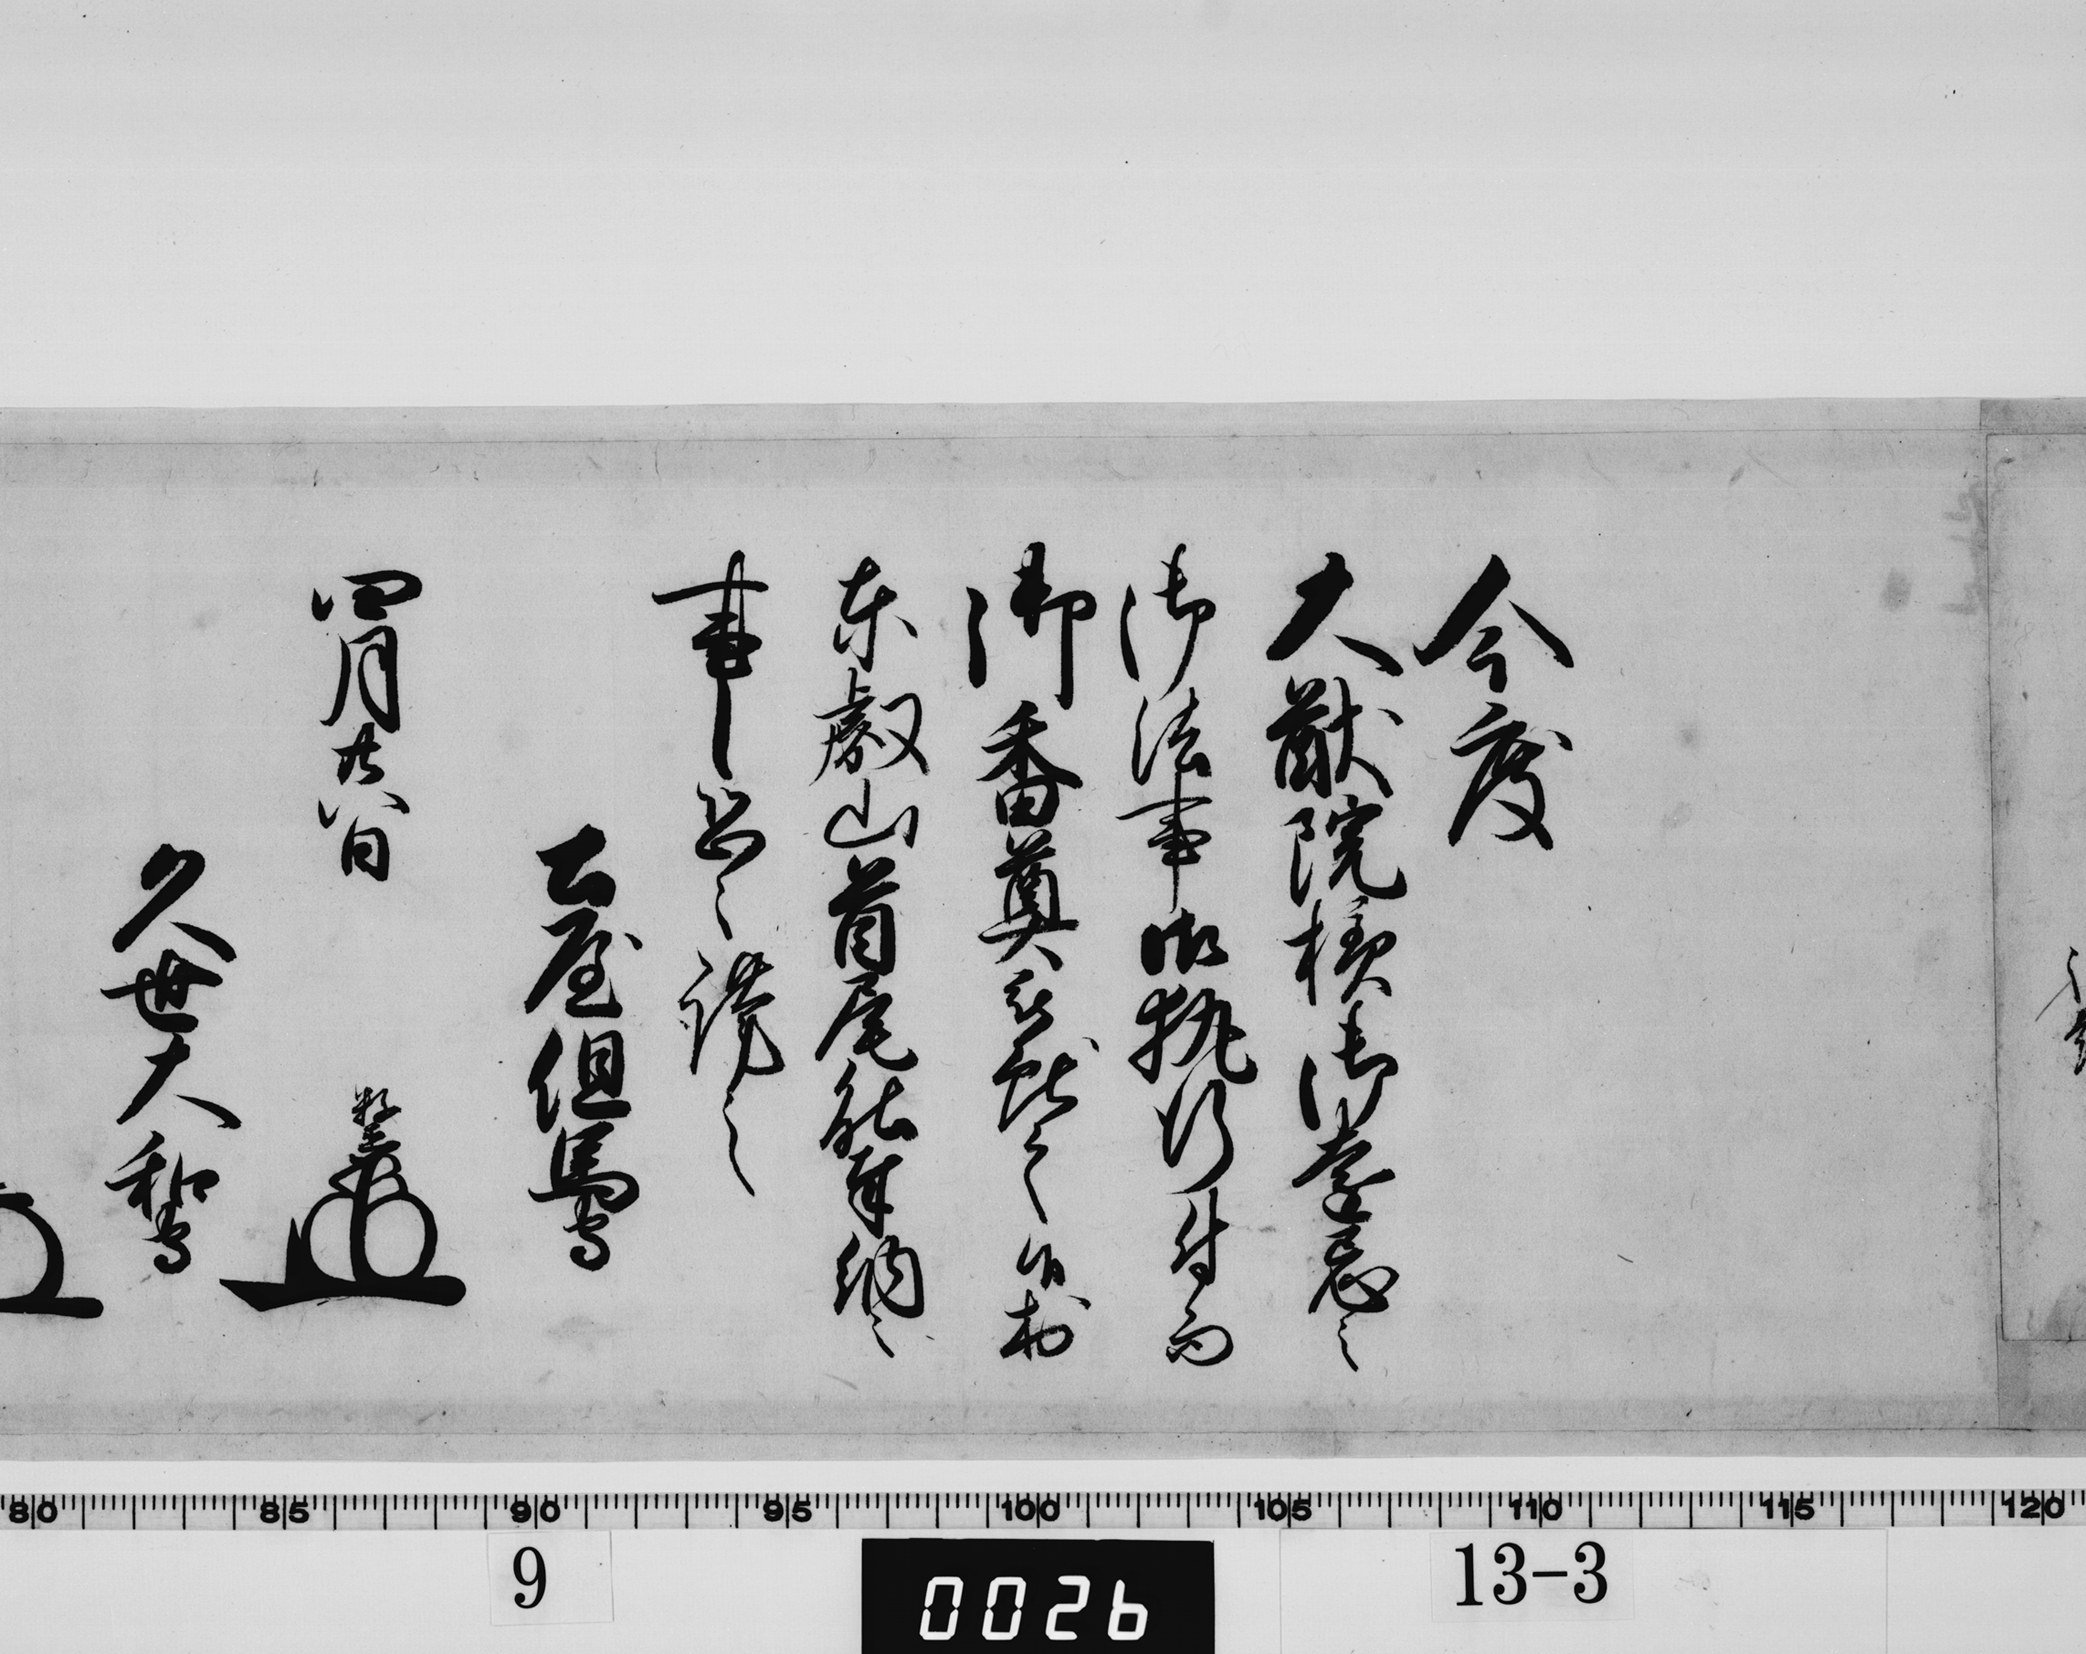 今度
大猷院様御年忌之
御法事御執行付而
御香奠被献之候於
東叡山首尾能奉納之
事候恐々謹言
土屋但馬守
四月廿八日 数直
久世大和守
80 85 90 95 100 105 110 115 120
9 0026 13-3